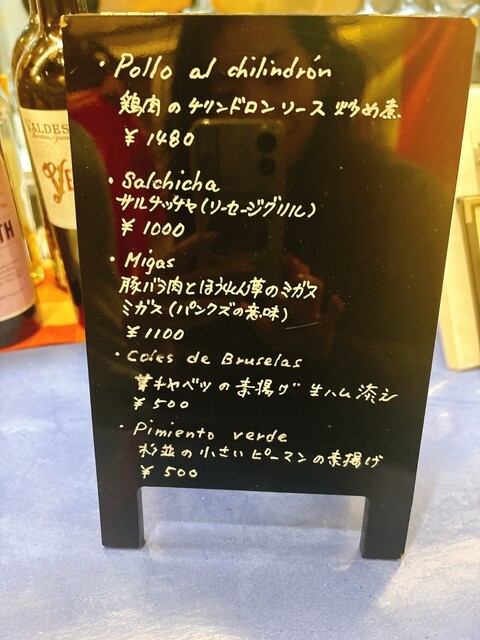 ・Pollo al chilindrón
鶏肉のチリンドロンソース炒め煮
¥1480
・Salchicha
サルチッチャ(ソーセージグリル)
¥1000
・Migas
豚バラ肉とほうれん草のミガス
ミガス(パンクズの意味)
¥1100
・Coles de Bruselas
芽キャベツの素揚げ 生ハム添え
¥500
・Pimiento verde
杉並の小さいピーマンの素揚げ
¥500
VALDES
TH